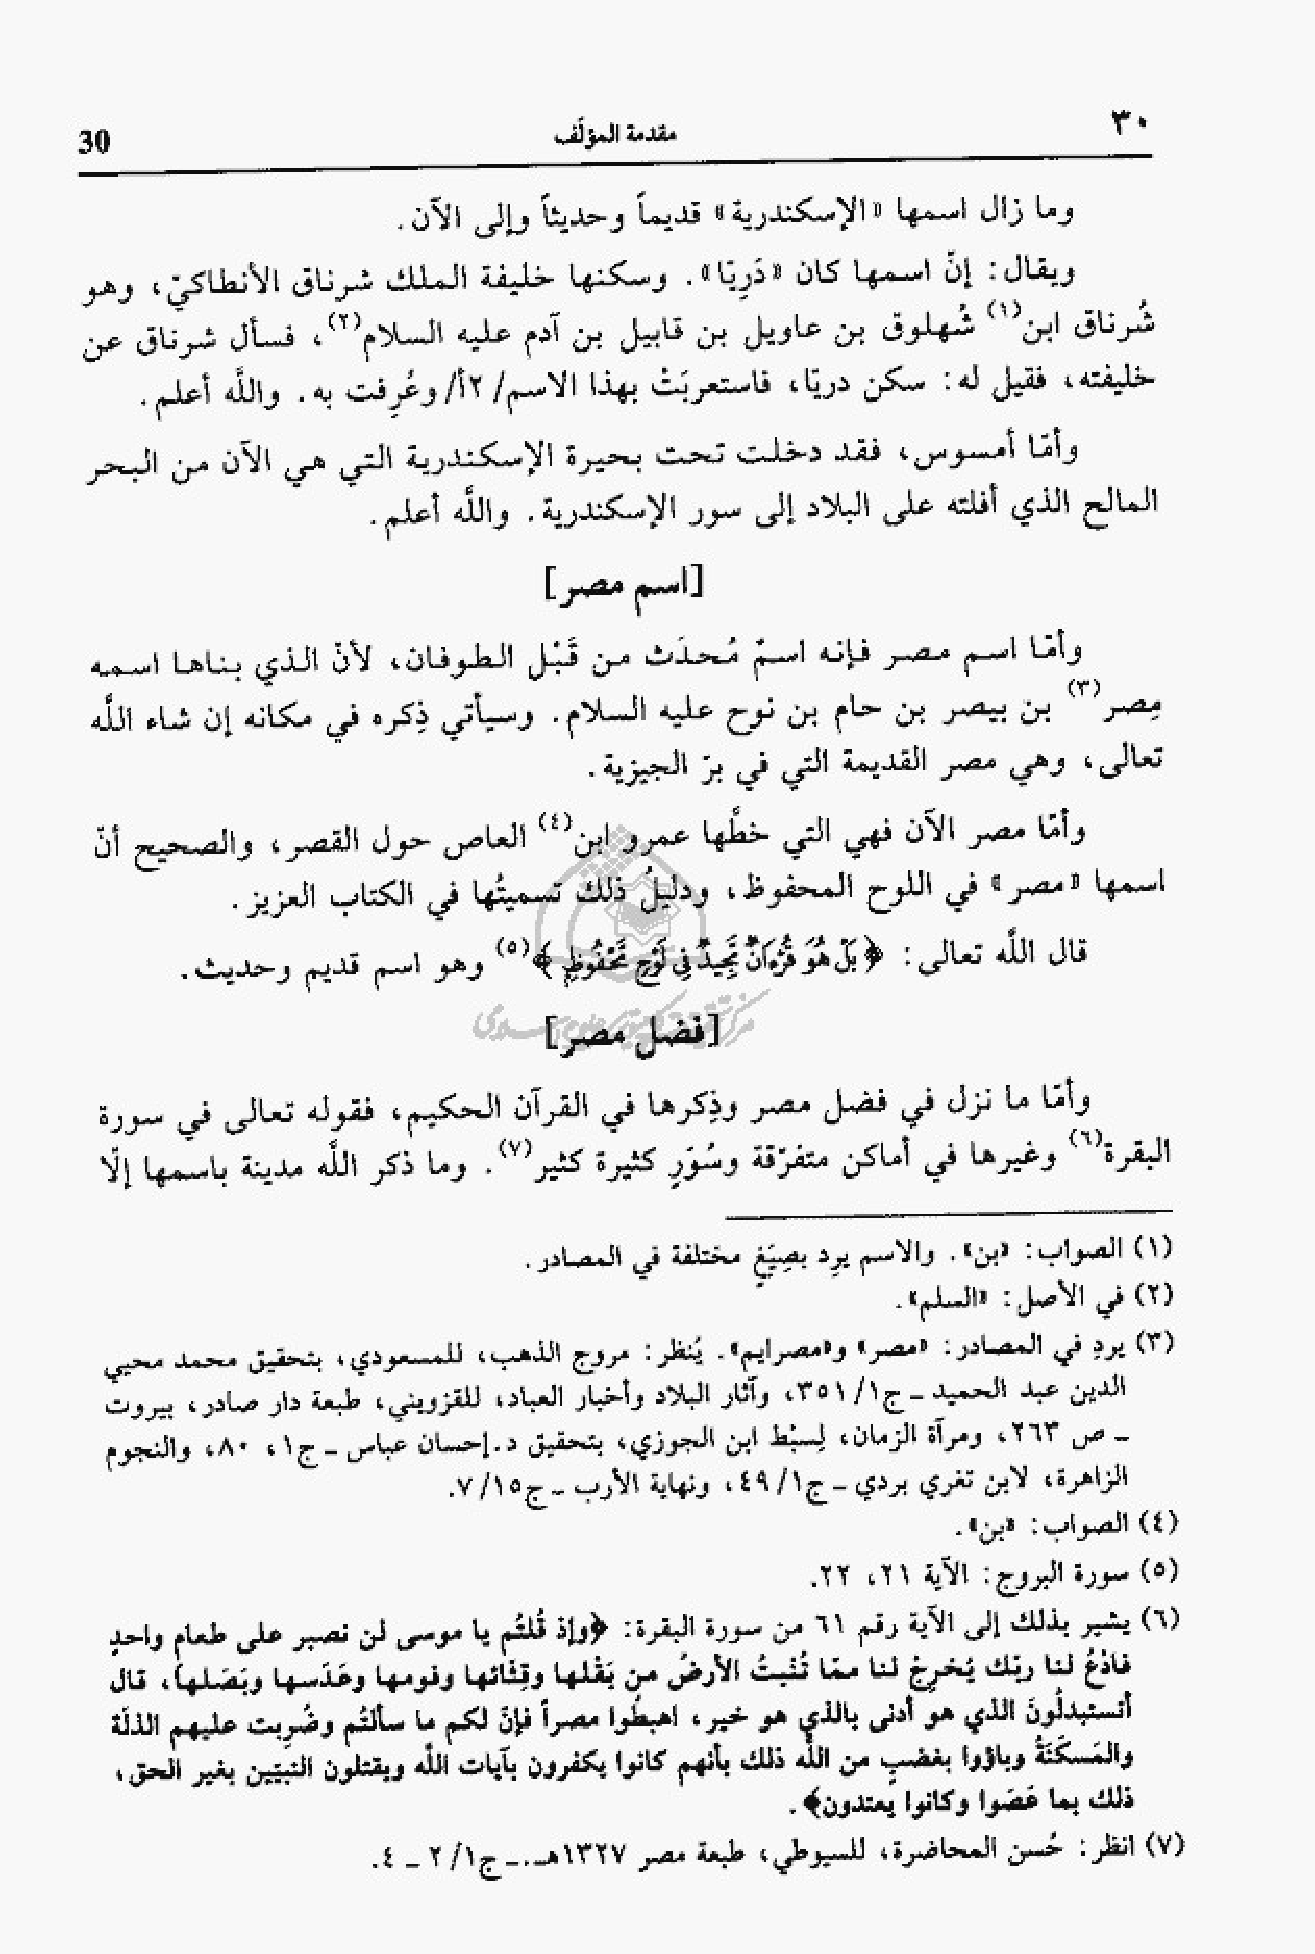 ٣٠ مقدمة المؤلّف 30
وما زال اسمها «الإسكندرية» قديماً وحديثاً وإلى الآن.
ويقال: إنّ اسمها كان «دَرِيّا». وسكنها خليفة الملك شرناق الأنطاكيّ، وهو
شُرناق ابن(١) شُهلوق بن عاويل بن قابيل بن آدم عليه السلام(٢)، فسأل شرناق عن
خليفته، فقيل له: سكن دريّا، فاستعربَتْ بهذا الاسم/ ٢أ/ وعُرِفت به. واللَّه أعلم.
وأمّا أمسوس، فقد دخلت تحت بحيرة الإسكندرية التي هي الآن من البحر
المالح الذي أفلته على البلاد إلى سور الإسكندرية. واللَّه أعلم.
[اسم مصر]
وأمّا اسم مصر فإنه اسمٌ مُحدَث من قَبْل الطوفان، لأنّ الذي بناها اسمه
مِصر(٣) بن بيصر بن حام بن نوح عليه السلام. وسيأتي ذِكره في مكانه إن شاء اللَّه
تعالى، وهي مصر القديمة التي في برّ الجيزية.
وأمّا مصر الآن فهي التي خطَّها عمرو ابن(٤) العاص حول القصر، والصحيح أنّ
اسمها «مصر» في اللوح المحفوظ، ودليلُ ذلك تسميتُها في الكتاب العزيز.
قال اللَّه تعالى: ﴿بَلْ هُوَ قُرْءَانٌ مَّجِيدٌ فِى لَوْحٍ مَّحْفُوظٍ﴾(٥) وهو اسم قديم وحديث.
[فضل مصر]
وأمّا ما نزل في فضل مصر وذِكرها في القرآن الحكيم، فقوله تعالى في سورة
البقرة(٦) وغيرها في أماكن متفرّقة وسُوَرٍ كثيرة كثير(٧). وما ذكر اللَّه مدينة باسمها إلّا
(١) الصواب: «بن». والاسم يرِد بصِيَغٍ مختلفة في المصادر.
(٢) في الأصل: «السلم».
(٣) يردِ في المصادر: «مصر» و«مصرايم». يُنظر: مروج الذهب، للمسعودي، بتحقيق محمد محيي
الدين عبد الحميد ـ ج١/ ٣٥١، وآثار البلاد وأخبار العباد، للقزويني، طبعة دار صادر، بيروت
ـ ص ٢٦٣، ومرآة الزمان، لِسبْط ابن الجوزي، بتحقيق د.إحسان عباس ـ ج١، ٨٠، والنجوم
الزاهرة، لابن تغري بردي ـ ج١/ ٤٩، ونهاية الأرب ـ ج١٥/ ٧.
(٤) الصواب: «بن».
(٥) سورة البروج: الآية ٢١، ٢٢.
(٦) يشير بذلك إلى الآية رقم ٦١ من سورة البقرة: ﴿وإذ قُلتُم يا موسى لن نصبر على طعام واحدٍ
فادْعُ لنا ربّك يُخرِجْ لنا ممّا تُنْبتُ الأرضُ من بَقْلها وقِثّائها وفومها وعَدَسها وبَصَلها، قال
أتستبدلُونَ الذي هو أدنى بالذي هو خير، اهبطُوا مصراً فإنّ لكم ما سألتُم وضُرِبت عليهم الذلّة
والمَسكَنَةُ وباؤوا بغضبٍ من اللَّه ذلك بأنهم كانوا يكفرون بآيات اللَّه ويقتلون النبيّين بغير الحق،
ذلك بما عَصَوا وكانوا يعتدون﴾.
(٧) انظر: حُسن المحاضرة، للسيوطي، طبعة مصر ١٣٢٧هـ.ـ ج١/ ٢ ـ ٤.